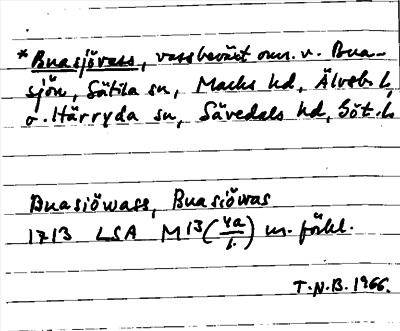 *Buasjövass, vassbeväxt omr. v. Bua-
sjön, Sätila sn, Marks hd, Älvsb. l,
o. Härryda sn, Sävedals hd, Göt. l.
Buasiöwass, Buasiöwas
1713 LSA M13(4a/1.) m. förkl.
T.N.B. 1966.